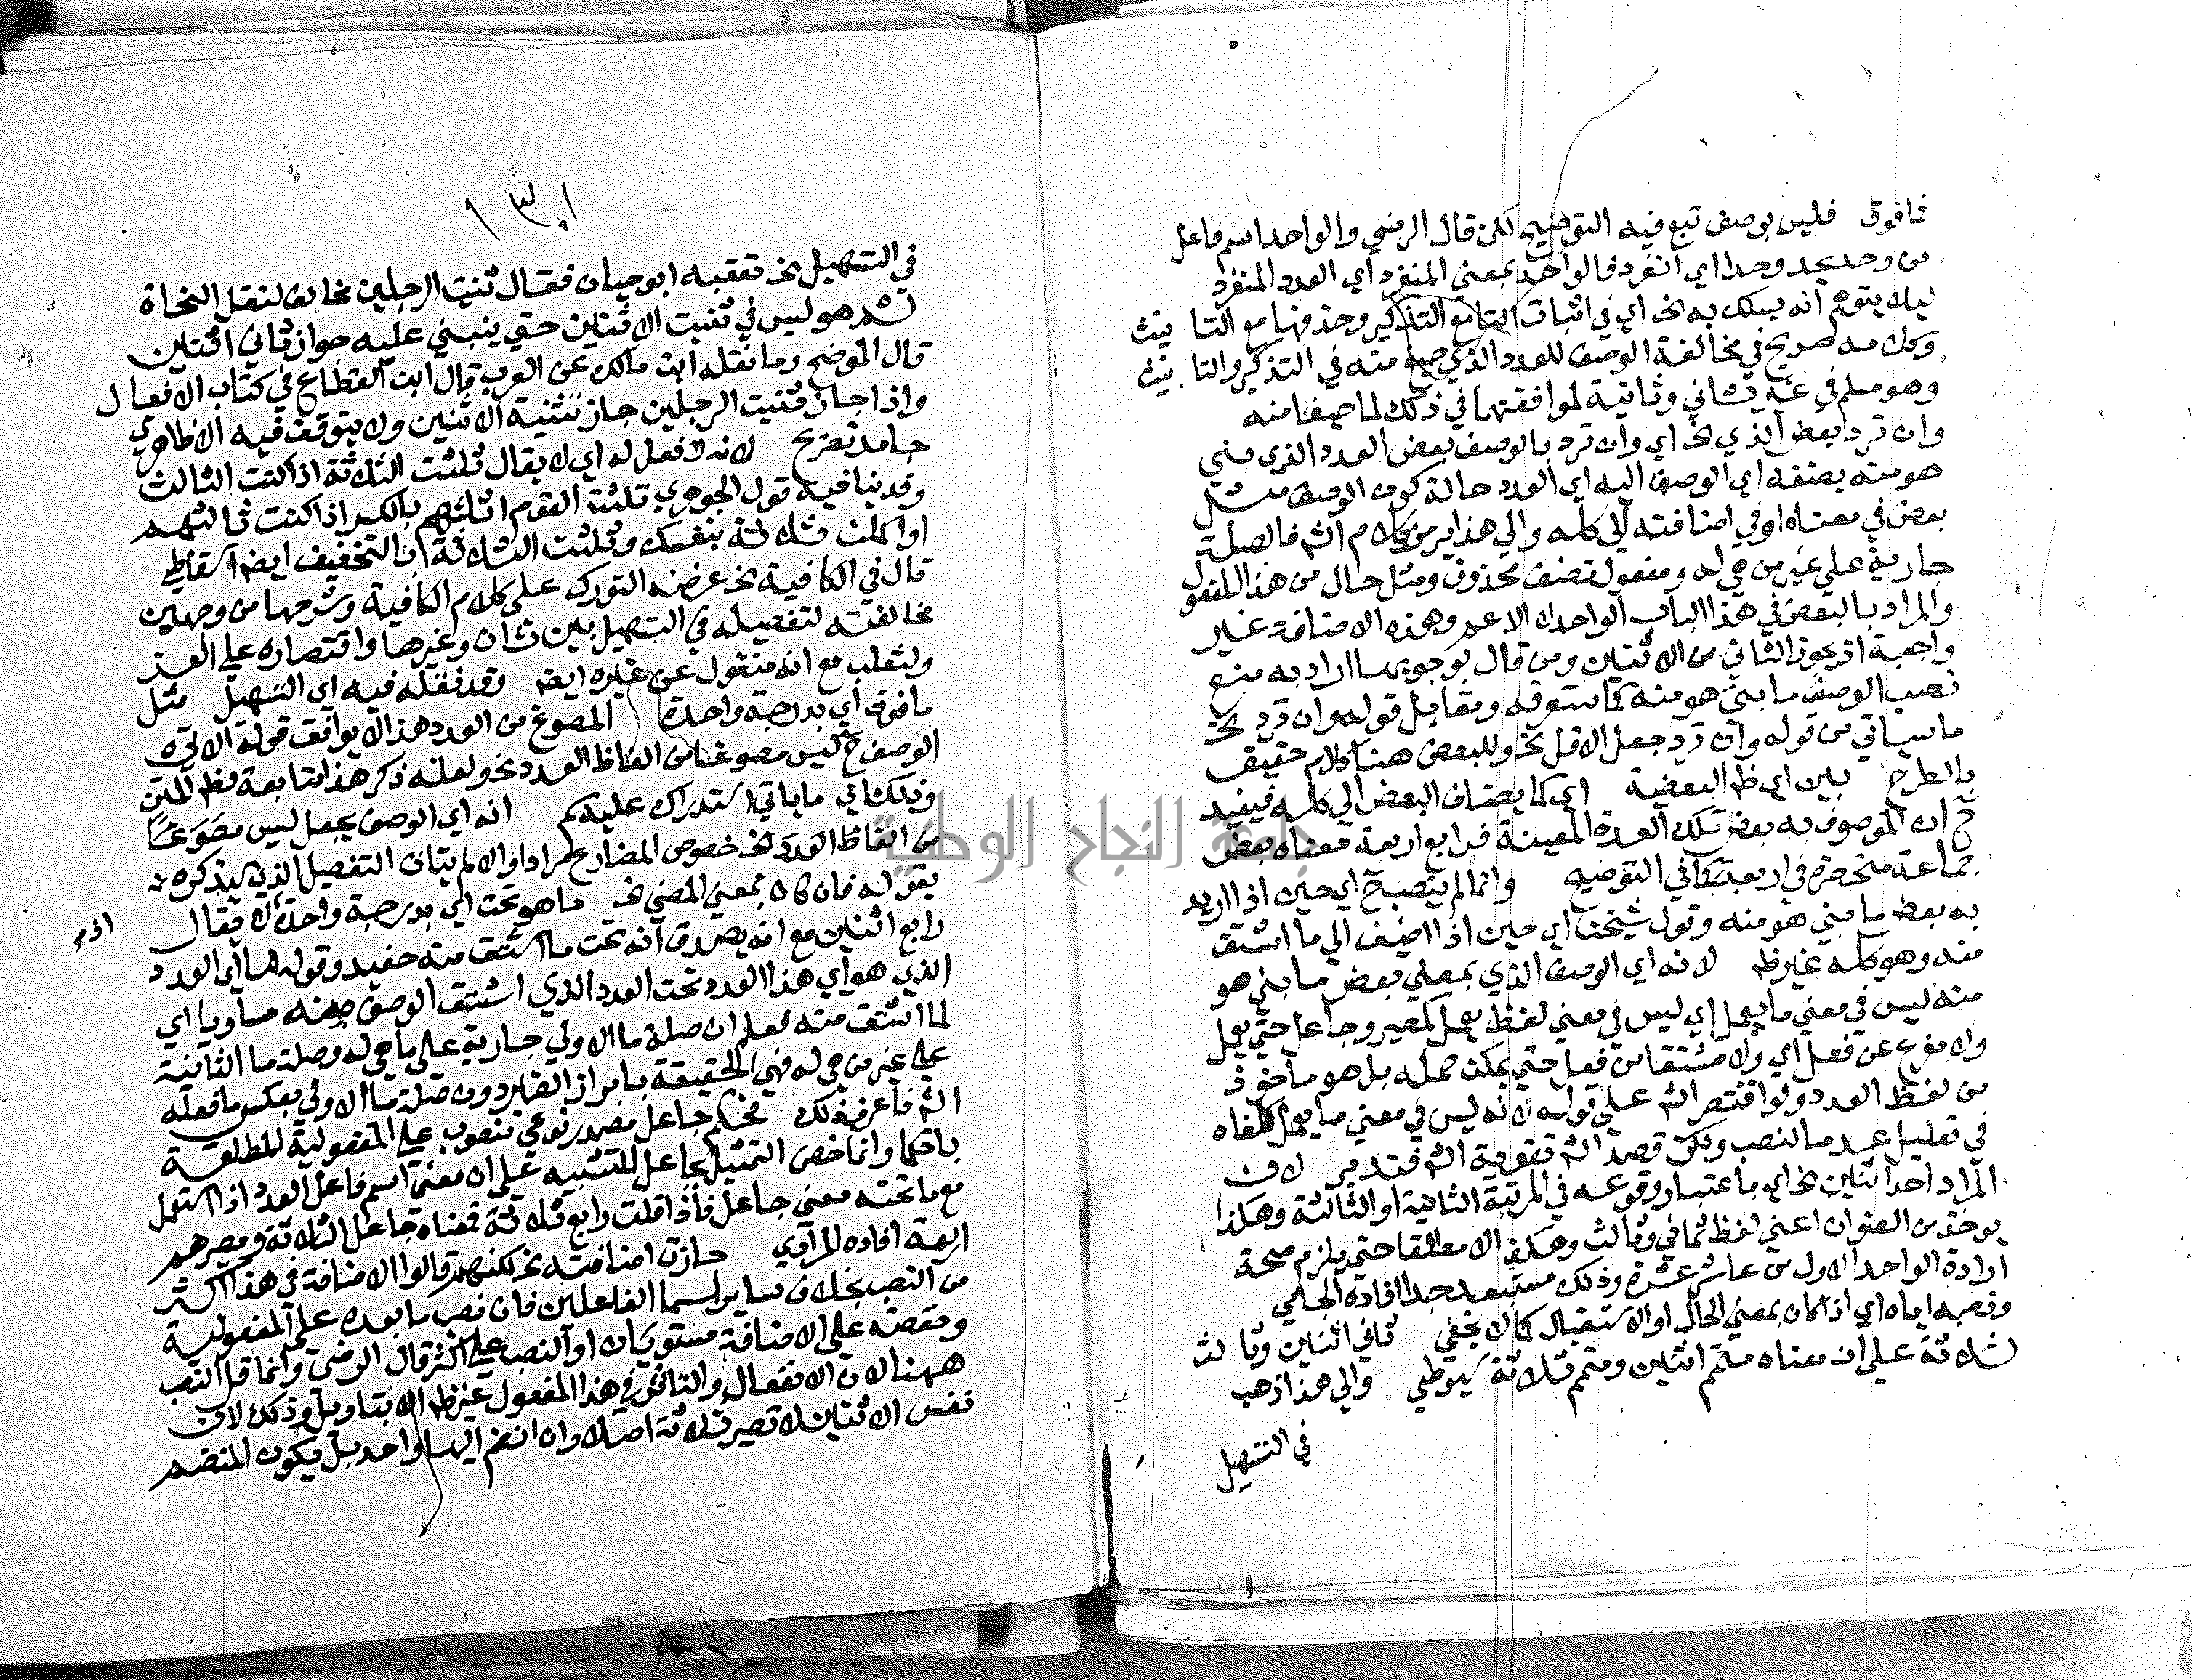 فافوق فليس بوصف تبع فيه التوضيح لكن قال الرضي والواحد اسم فاعل
من وحد يحد وحدا اي انفرد فالواحد بمعني المنفرد اي العدد المنفرد
ليلا يتوهم انه يسلك به الخ اي في اثبات التا مع التذكير وحذفها مع التا نيث
وكلامه صريح في مخالفة الوصف للعدد الذي صيغ منه في التذكير والتا نيث
وهو مسلم في غير ثاني وثانية لموافقتهما في ذلك لما صيغا منه
وان ترد بعض الذي الخ اي وان ترد بالوصف بعض العدد الذي بني
هو منه يضفه اي الوصف اليه اي العدد حالة كون الوصف مثل
بعض في معناه او في اضافته الي كله والي هذا يرمز كلام الش فالصلة
جارية علي غير من هي له ومفعول تضف محذوف ومثل حال من هذا المفعول
والمراد بالبعض في هذا الباب الواحد لا الاعم وهذه الاضافة غير
واجبة اذ يجوز الثاني من الاثنين ومن قال بوجوبها اراد به منع
نصب الوصف ما بني هو منه كما ستعرفه ويقابل قوله وان ترد الخ
ما سياتي من قوله وان ترد جعل الاقل الخ وللبعض هنا كلام حقيق
بالطرح بين اي ظ البعضية اي كما يضاف البعض الي كله فيفيد
ح ان الموصوف به بعض تلك العدة المعينة فرابع اربعة معناه بعض
جماعة منحصرة في اربعة كما في التوضيح وانما لم ينصب ح اي حين اذا اريد
به بعض ما بني هو منه وقول شيخنا اي حين اذا اضيف الي ما اشتق
منه وهو كله غير ظ لانه اي الوصف الذي بمعني بعض ما بني هو
منه ليس في معني ما يعمل اي ليس في معني لفظ يعمل كمصير وجاعل حتي يعمل
ولا مفرع عن فعل اي ولا مشتقا من فعل حتي يمكن عمله بل هو ماخوذ
من لفظ العدد ولو اقتصر الش علي قوله لانه ليس في معني ما يعمل لكفاه
في تعليل عدم النصب ولكن قصد الش تقوية الش فتدبر لان
المراد احد اثنين الخ اي باعتبار وقوعه في المرتبة الثانية او الثالثة وهكذا
يوخذ من العنوان اعني لفظ ثاني وثالث وهكذا لا مطلقا حتي يلزم صحة
ارادة الواحد الاول من عاشر عشرة وذلك مستبعد جدا افاده الجامي
ونصبه اياه اي اذا كان بمعني الحال او الاستقبال كما لا يخفي ثاني اثنين وثالث
ثلاثة علي ان معناه متمم اثنين ومتمم ثلاثة سيوطي والي هذا ذهب
في التسهيل
١٣٠
في التسهيل الخ تعقبه ابو حيان فقال ثنيت الرجلين مخالف لنقل النحاة
ثم هو ليس في ثنيت الاثنين حتي ينبني عليه جواز ثاني اثنين
قال الموضح وما نقله ابن مالك عن العرب قال ابن القطاع في كتاب الافعال
واذا جاز ثنيت الرجلين جاز تثنية الاثنين ولا يتوقف فيه الا ظاهري
جامد تصريح لانه لا فعل له اي لا يقال ثلثت الثلاثة اذا كنت الثالث
وقد ينافيه قول الجوهري ثلثت القوم اثلثهم بالكسر اذا كنت ثالثهم
او اكملت ثلاثة بنفسك وثلثت الثلاثة ان التخفيف ايضا اسقاطي
قال في الكافية الخ غرضه التورك علي كلام الكافية وشرحها من وجهين
مخالفته لتفصيله في التسهيل بين ثان وغيرها واقتصاره علي العز
ولثعلب مع انه منقول عن غيره ايضا وقد نقله فيه اي التسهيل مثل
ما فوق اي بدرجة واحدة المصوغ من العدد هذا لا يوافق قوله الاتي
الوصف ح ليس مصوغا من الفاظ العدد الخ ولعله ذكر هذا متابعة لظ المتن
وذلك اتي ما ياتي استدراك عليكم انه اي الوصف بجعل ليس مصوغا
من الفاظ العدد الخ خصوص المضارع مراد والا لم يتات التفصيل الذي يذكره
بقوله فان كان بمعني المضي الخ ما هو تحت اي بدرجة واحدة لا يقال
رابع اثنين مع انه يصدق انه تحت ما اشتق منه حفيد وقوله ما اي العدد
الذي هو اي هذا العدد تحت العدد الذي اشتق الوصف منه مساويا اي
لما اشتق منه فعلم ان صلة ما الاولي جارية علي ما هي له وصلة ما الثانية
علي غير من هي له فهي الحقيقة بابراز الضمير دون صلة ما الاولي بعكس ما فعله
الش فاعرف ذلك فحكم جاعل مصدر نوعي منصوب علي المفعولية المطلقة
باحكما وانما خص التمثيل بجاعل للتنبيه علي ان معني اسم فاعل العدد اذا استعمل
مع ما تحته معني جاعل فاذا قلت رابع ثلاثة فمعناه جاعل الثلاثة ومصيرهم
اربعة افاده المرادي جازت اضافته الخ لكنهم قالوا الاضافة في هذا اكثر
من النصب بخلاف سائر اسما الفاعلين فان نصب ما بعده علي المفعولية
وخفضه علي الاضافة مستويان او النصب علي اكثر قال الرضي وانما قل النصب
ههنا لان الانفعال والتاثر في هذا المفعول غير ظ الا بتاويل وذلك لان
نفس الاثنين لا تصير ثلاثة اصلا وان انضم اليها واحد بل يكون المنضم
جامعة النجاح الوطنية